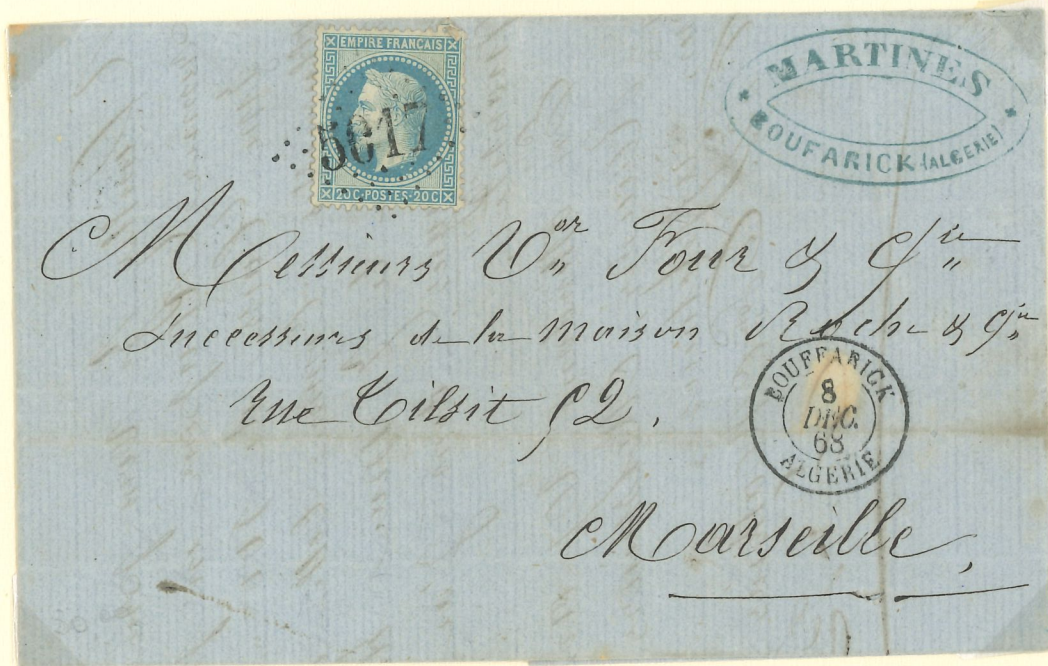 EMPIRE FRANÇAIS
5017
20 C · POSTES · 20 C
MARTINES
BOUFARICK (ALGERIE)
Messieurs Vor Four & Cie
Successeurs de la maison Roche & Cie
Rue Tilsit 52.
BOUFFARICK
8
DEC.
68
ALGERIE
Marseille,